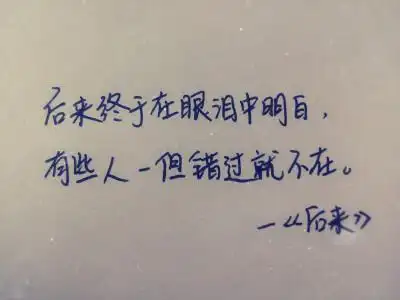 后来终于在眼泪中明白,
有些人一但错过就不在。
—《后来》